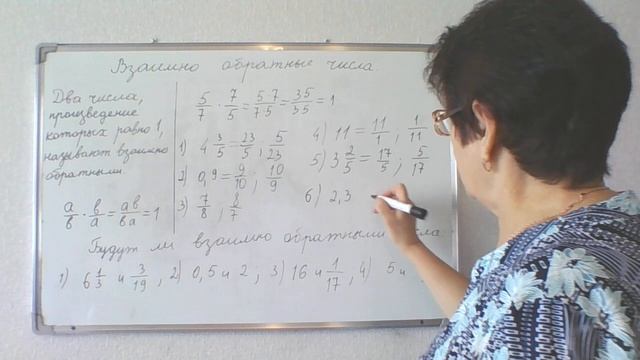 Взаимно обратные числа.
Два числа,
произведение
которых равно 1,
называют взаимно
обратными.
a/b · b/a = ab/ba = 1
5/7 · 7/5 = 5·7/7·5 = 35/35 = 1
1) 4 3/5 = 23/5 ; 5/23
2) 0,9 = 9/10 ; 10/9
3) 7/8 ; 8/7
4) 11 = 11/1 ; 1/11
5) 3 2/5 = 17/5 ; 5/17
6) 2,3
Будут ли взаимно обратными
1) 6 1/3 и 3/19 , 2) 0,5 и 2 ; 3) 16 и 1/17 , 4) 5 и